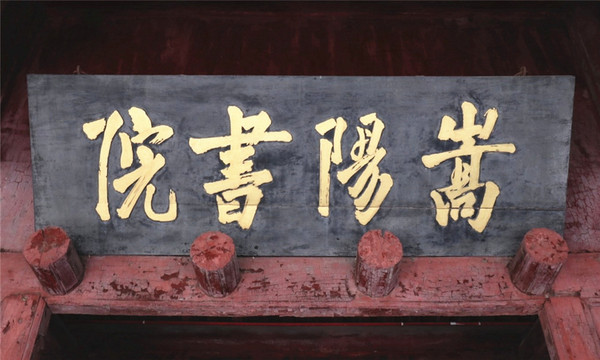 嵩陽書院